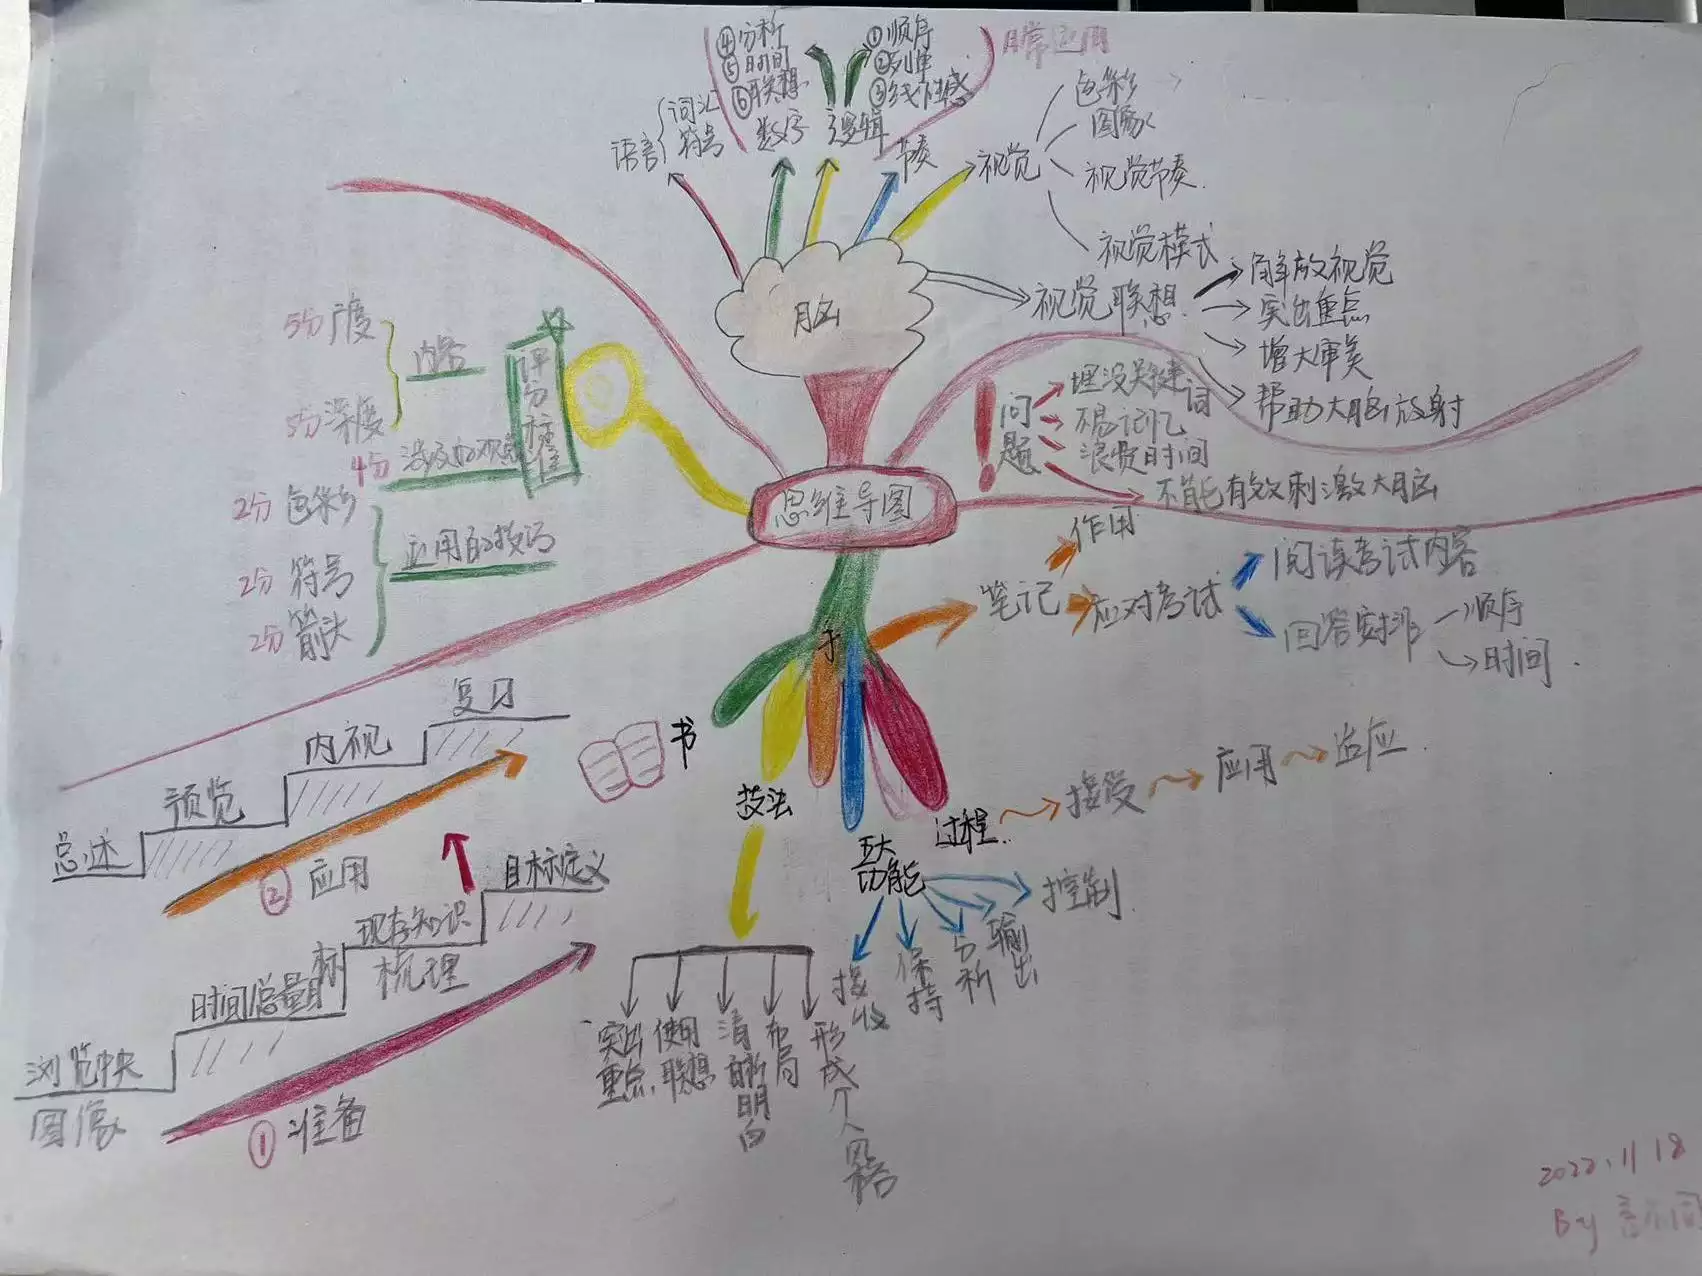 ④分析
⑤时间
⑥联想
①顺序
②列单
③线性感
日常应用
语言
词汇
符号
数字
逻辑
节奏
视觉
色彩
图象
视觉节奏
视觉模式
视觉联想
解放视觉
突出重点
增大审美
帮助大脑放射
脑
问题
埋没关键词
不易记忆
浪费时间
不能有效刺激大脑
思维导图
5分 广度
5分 深度
内容
评分标准
4分
2分 色彩
2分 符号
2分 箭头
应用的技巧
笔记
作用
应对考试
阅读考试内容
回答安排
顺序
时间
手
书
总述
预览
内视
复习
② 应用
浏览中央
图像
时间总量目标
现存知识
梳理
目标定义
① 准备
技法
突出重点
使用联想
清晰明白
布局
形成个人风格
五大功能
接收
保持
分析
输出
控制
过程
接受
应用
适应
2022.11 18
By